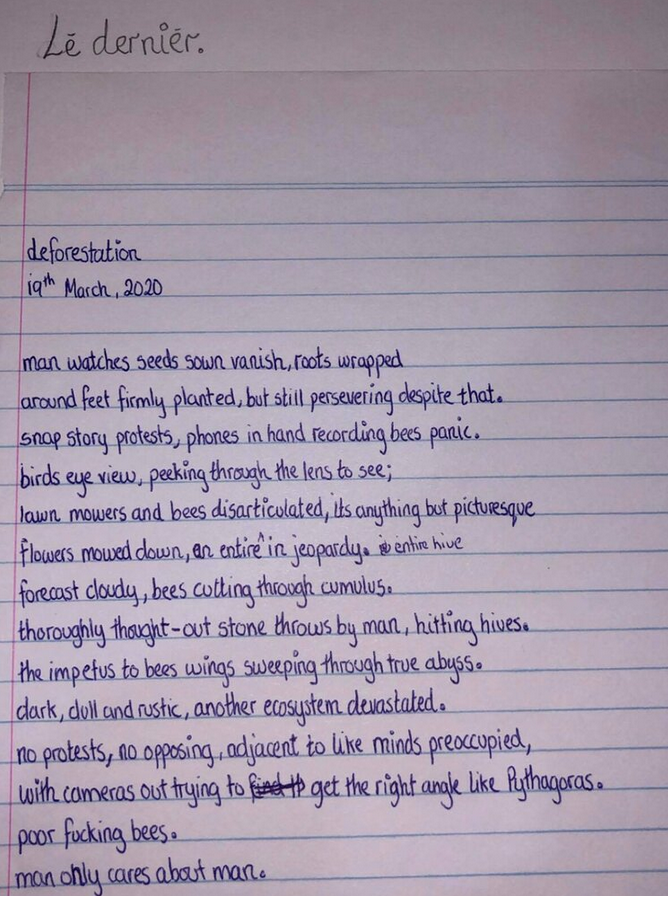 Lē derniēr.
deforestation
19th March, 2020
man watches seeds sown vanish, roots wrapped
around feet firmly planted, but still persevering despite that.
snap story protests, phones in hand recording bees panic.
birds eye view, peeking through the lens to see;
lawn mowers and bees disarticulated, its anything but picturesque
flowers mowed down, an entire ^ in jeopardy. entire hive
forecast cloudy, bees cutting through cumulus.
thoroughly thought-out stone throws by man, hitting hives.
the impetus to bees wings sweeping through true abyss.
dark, dull and rustic, another ecosystem devastated.
no protests, no opposing, adjacent to like minds preoccupied,
with cameras out trying to get the right angle like Pythagoras.
poor fucking bees.
man only cares about man.